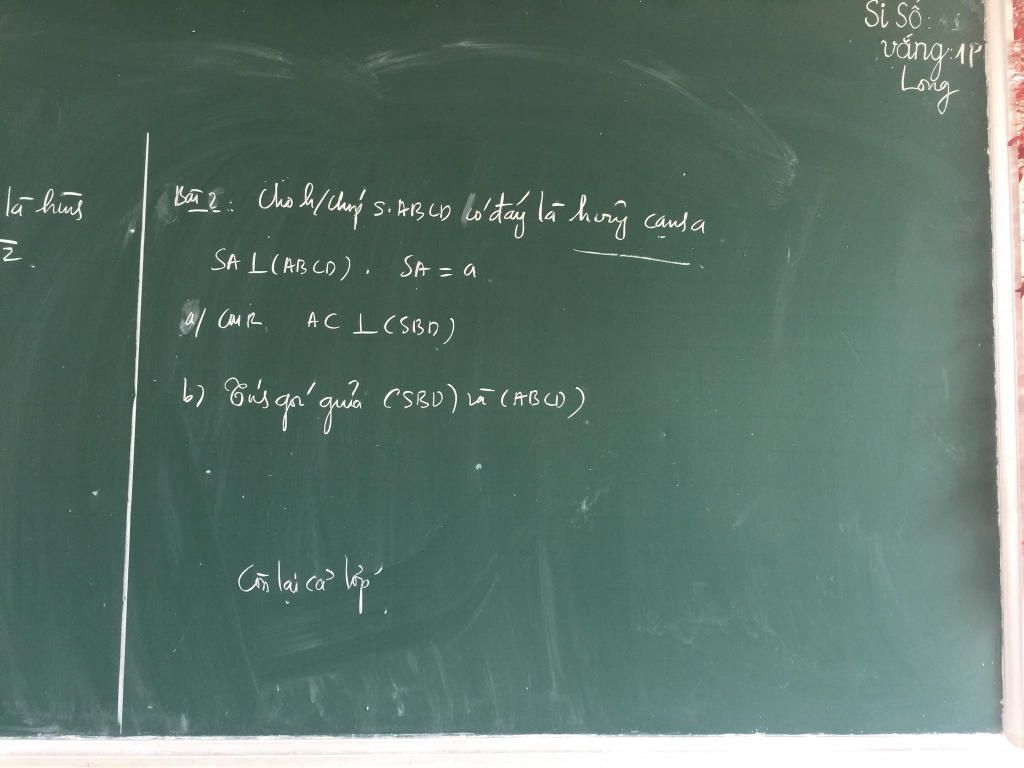 Sĩ Số:
vắng: 1P
Long
là hình
2.
Bài 2: Cho h/chóp S.ABCD có đáy là h.vuông cạnh a
SA ⊥ (ABCD). SA = a
a/ CMR AC ⊥ (SBD)
b) Tính góc giữa (SBD) và (ABCD)
Còn lại cả lớp.